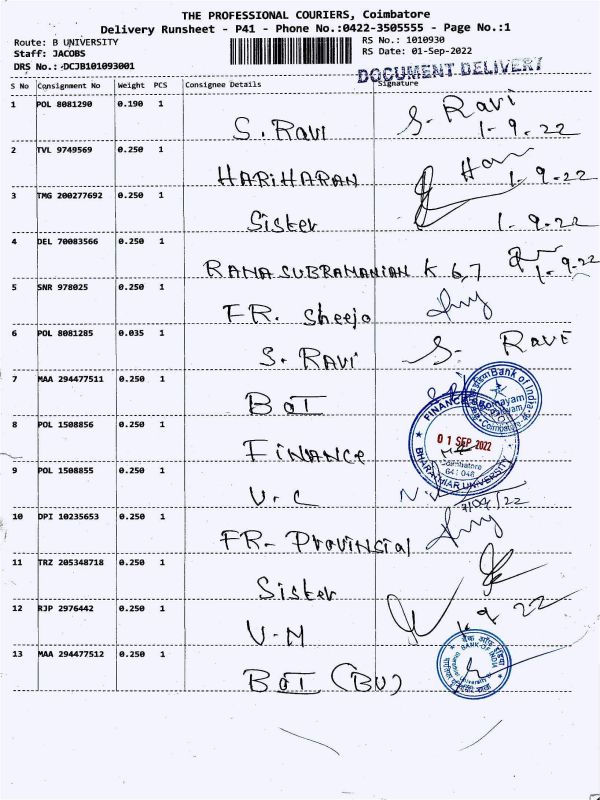 THE PROFESSIONAL COURIERS, Coimbatore
Delivery Runsheet - P41 - Phone No.:0422-3505555 - Page No.:1
Route: B UNIVERSITY
RS No.: 1010930
Staff: JACOBS
RS Date: 01-Sep-2022
DRS No.: DCJB101093001
DOCUMENT DELIVERY
S No Consignment No Weight PCS Consignee Details Signature
1 POL 8081290 0.190 1 S. Ravi S. Ravi 1-9-22
2 TVL 9749569 0.250 1 HARIHARAN Hari 1-9-22
3 TMG 200277692 0.250 1 Sister 1-9-22
4 DEL 70083566 0.250 1 RAMASUBRAMANIAN K 6,7 1-9-22
5 SNR 978025 0.250 1 FR. Sheejo
6 POL 8081285 0.035 1 S. RAVI S. RAVI
7 MAA 294477511 0.250 1 BOI
Bank of India
Coimbatore
8 POL 1508856 0.250 1 FINANCE
FINANCE
01 SEP 2022
Coimbatore
641 046
BHARATHIAR UNIVERSITY
9 POL 1508855 0.250 1 V.C
10 DPI 10235653 0.250 1 FR- Provinsial
11 TRZ 205348718 0.250 1 Sister
12 RJP 2976442 0.250 1 V-M 1-9-22
13 MAA 294477512 0.250 1 BOI (BU)
बैंक ऑफ इंडिया
BANK OF INDIA